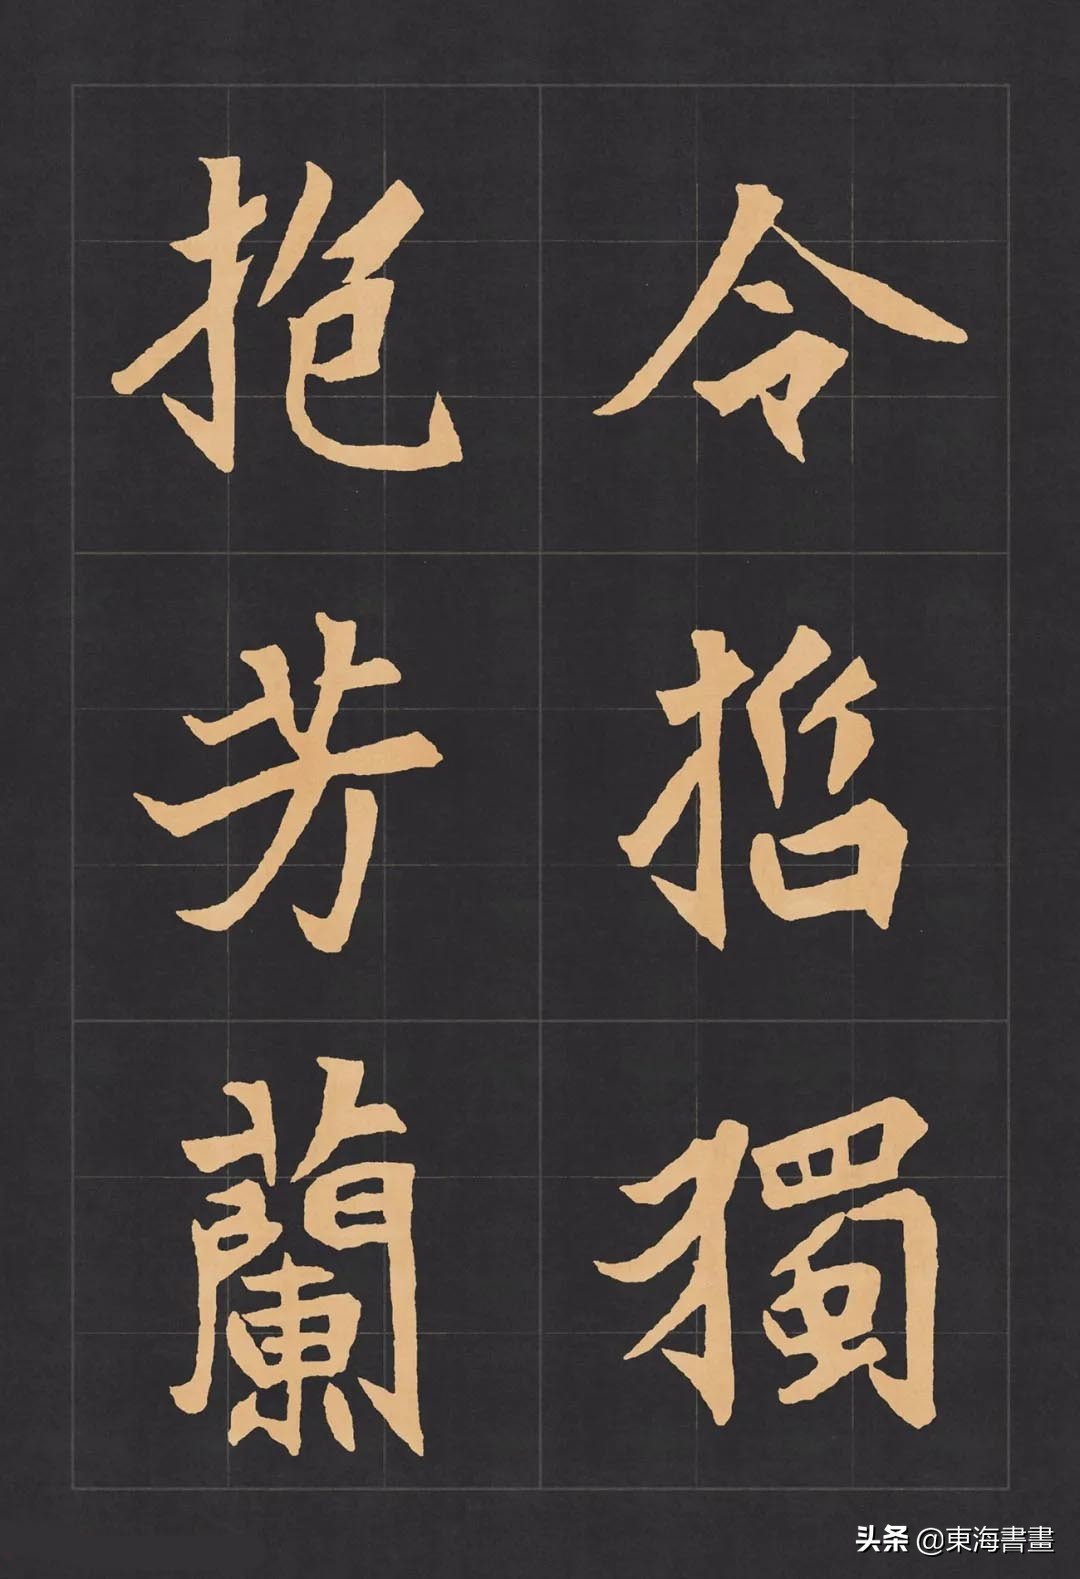 令哲獨
抱芳蘭
头条 @東海書畫